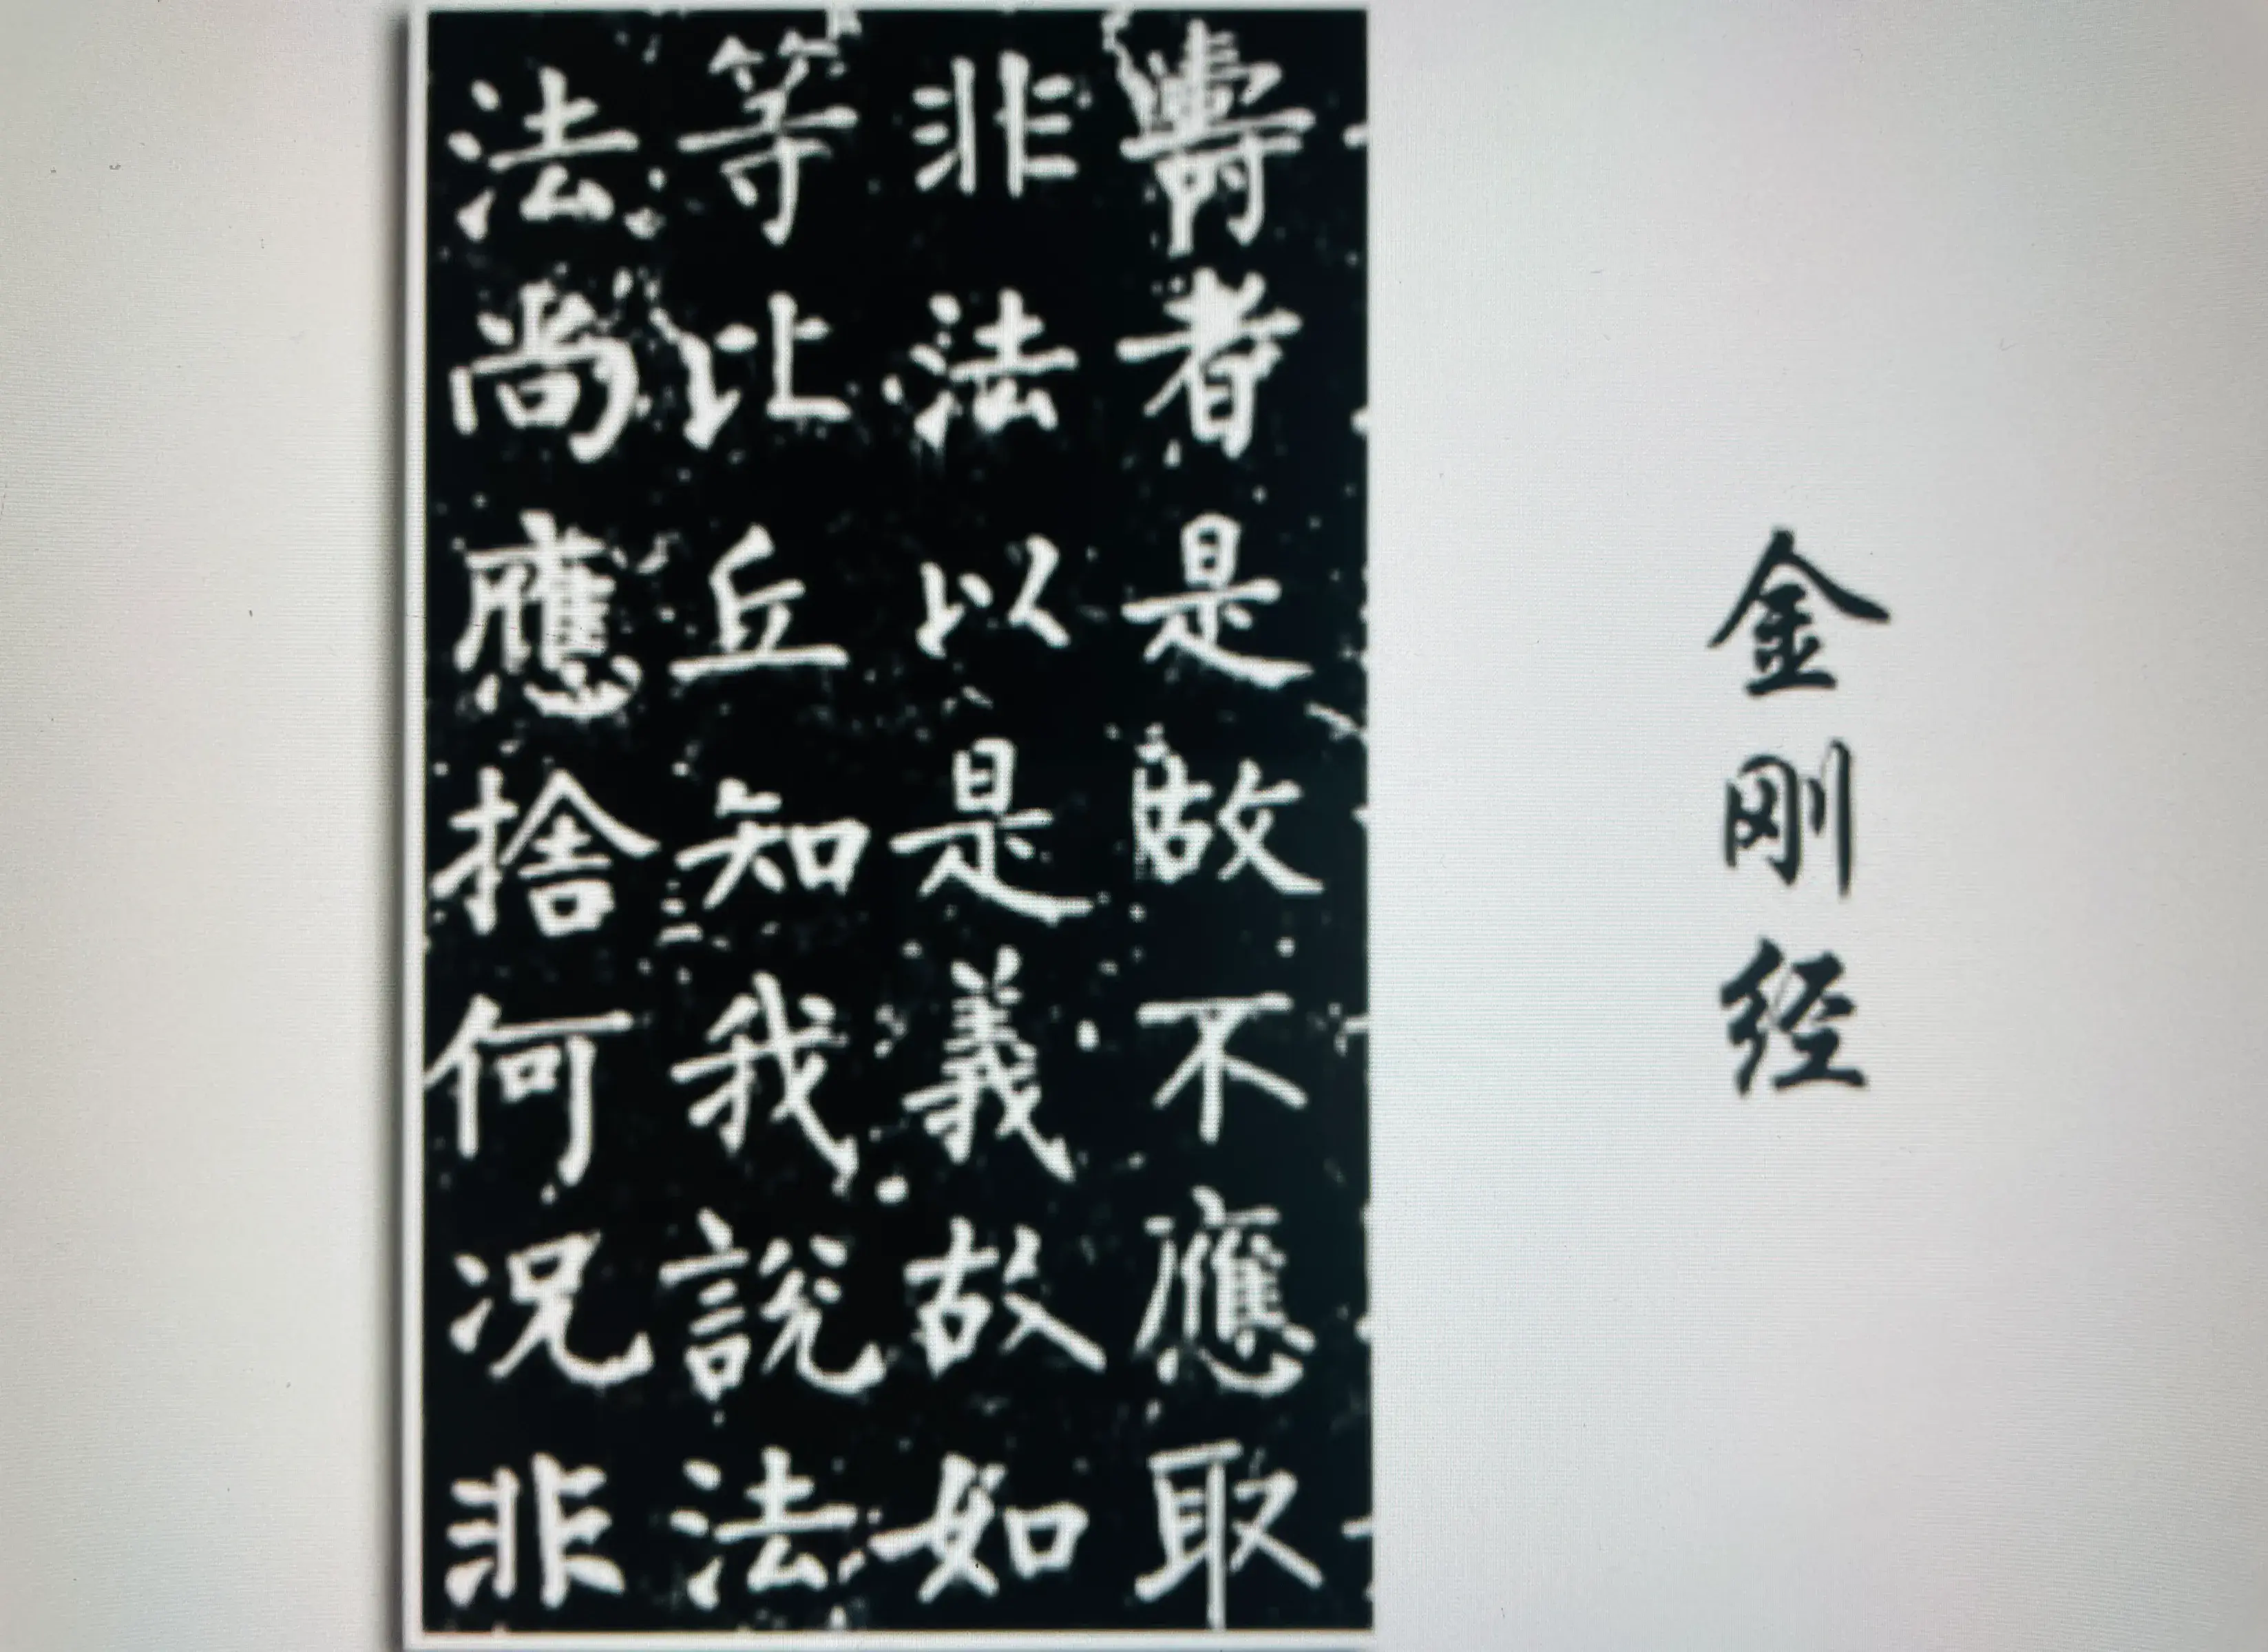 金刚经
壽者是故不應取
非法以是義故如
等比丘知我說法
法尚應捨何況非